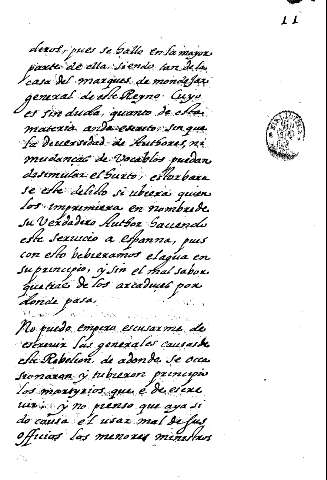 11
deros, pues se hallo en la mayor
parte de ella siendo tan de la
casa del marques de mondejar
general de este Reyno. Cuyo
es sin duda, quanto de esta
materia anda escrito, sin que
la deversidad de Authores, ni
mudanças de Vocablos puedan
desimular el hurto, estorbara
se este delito si ubiera quien
los imprimiera en nombre de
su Verdadero Author haciendo
este servicio a España, pues
con esto bebieramos el agua en
su principio, y sin el mal sabor
que trae de los arcaduces por
donde pasa.
No puedo empero escusarme de
escrevir las generales causas de
este Rebelion de adonde se oca
sionaron y tubieron principio
los martyrios que e de escre
vir; y no pienso que aya si
do causa el usar mal de sus
officios los menores ministros